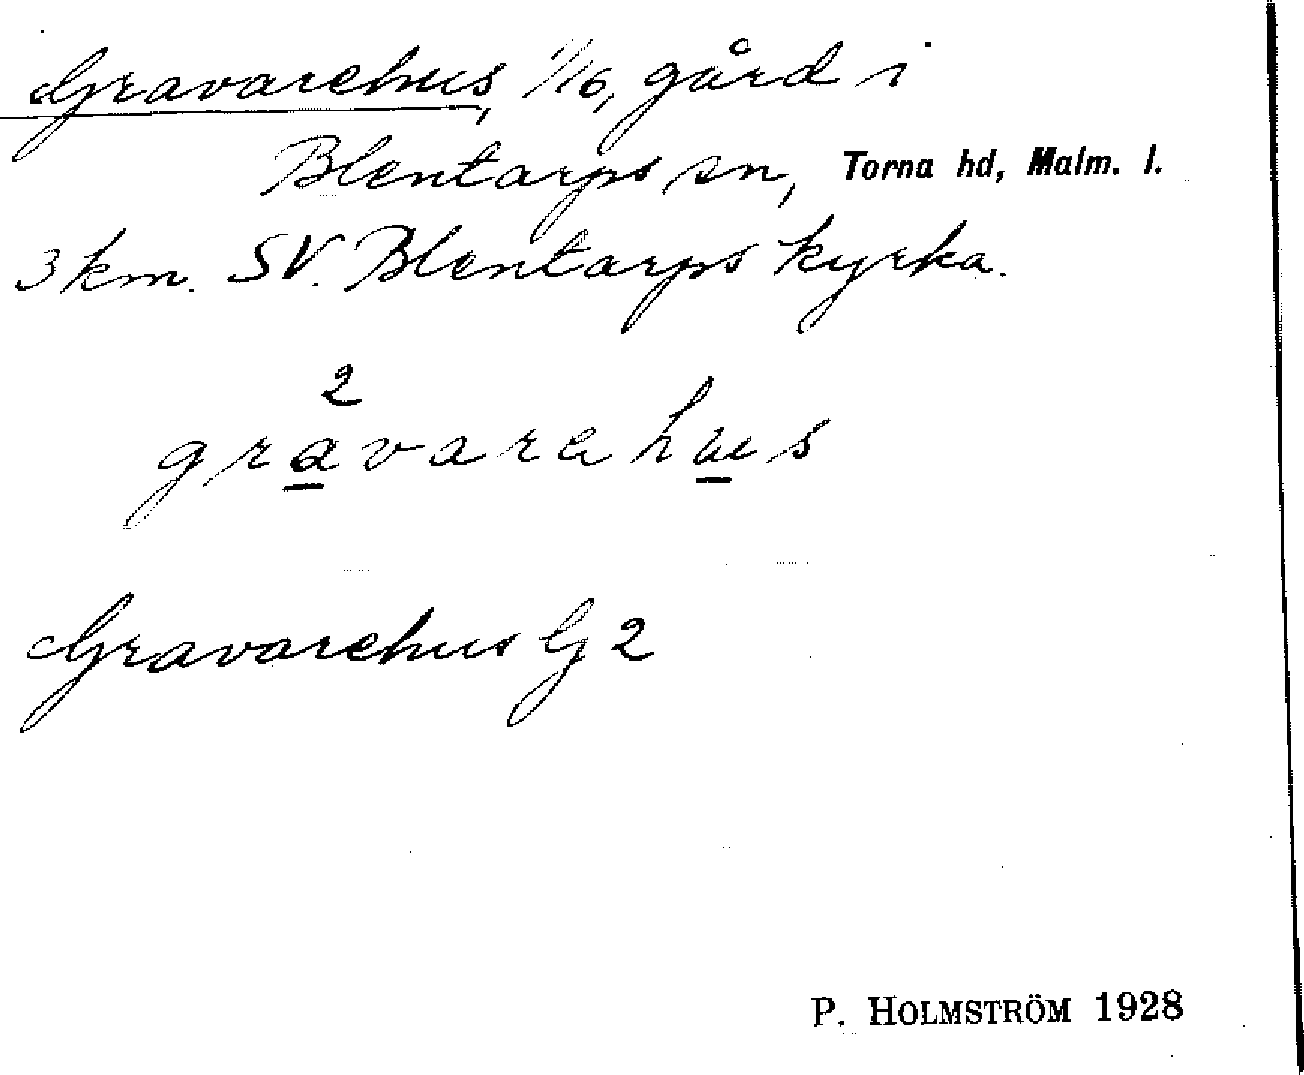 Gravarehus, 1/16, gård i
Blentarps sn, Torna hd, Malm. l.
3 km. SV. Blentarps kyrka.
2
gravarehus
Gravarehus G 2
P. HOLMSTRÖM 1928